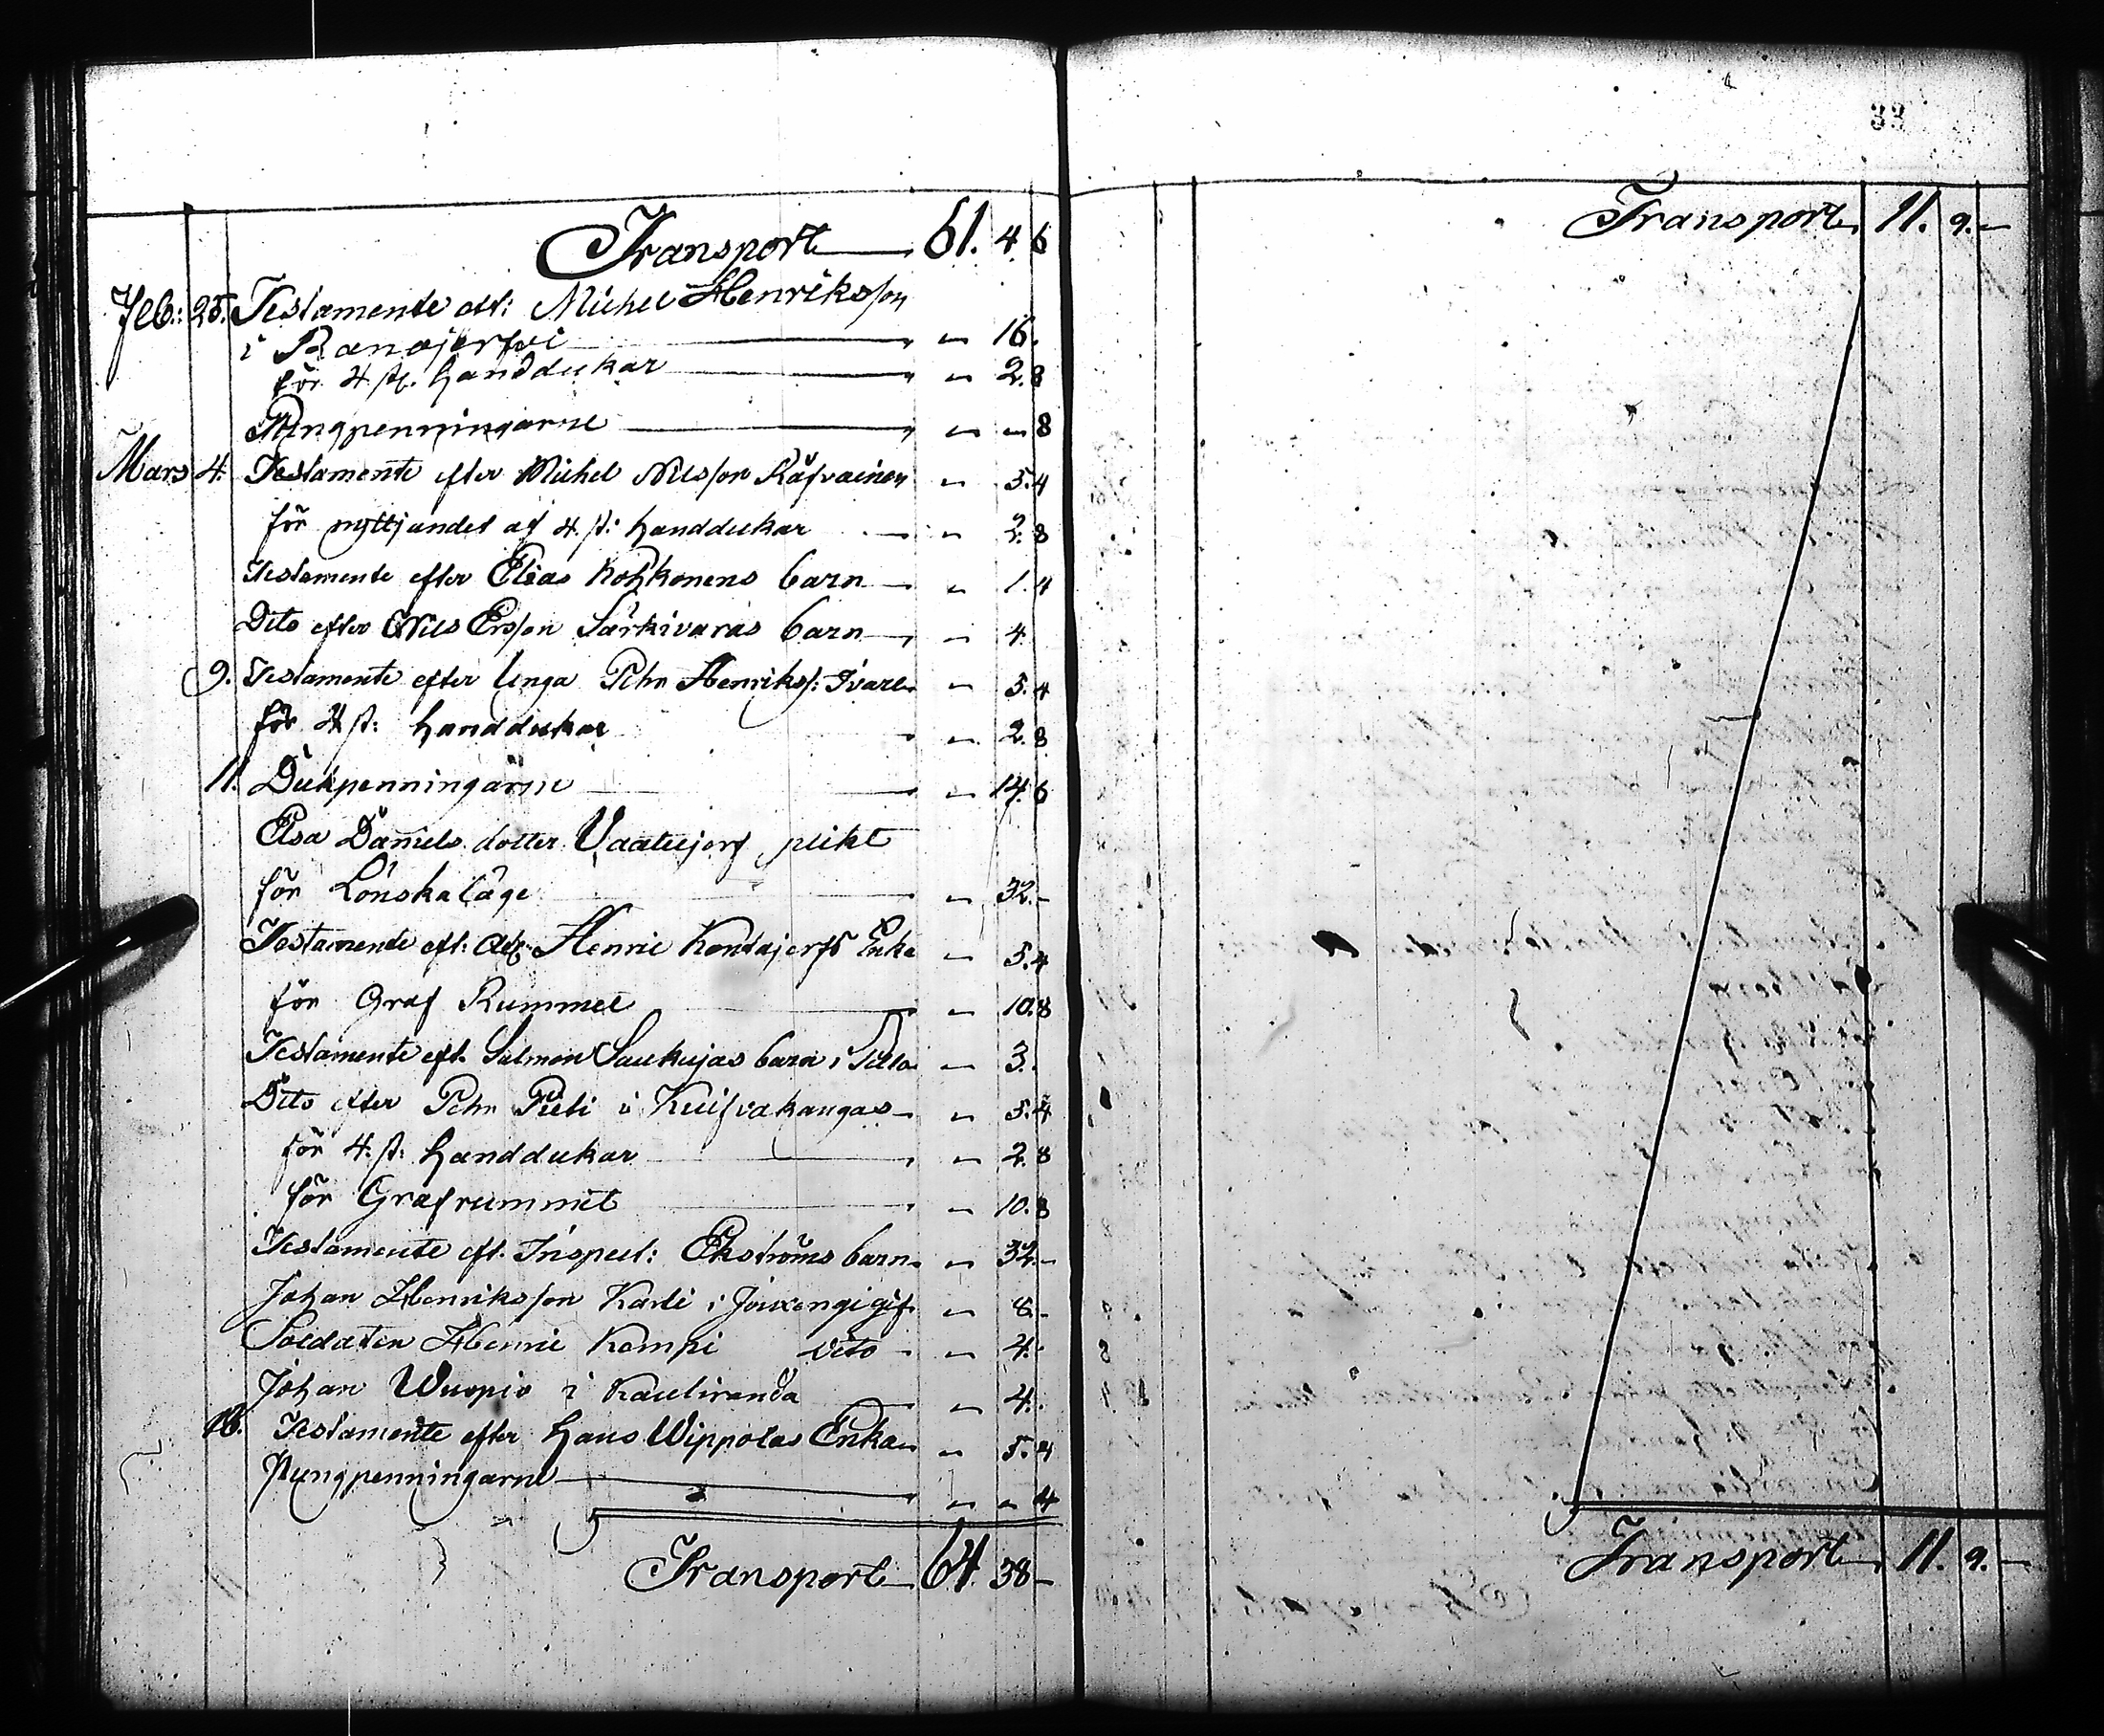 Transport 61. 4. 6
Feb: 25. Testamente eft: Michel Henriksson
i Ranojerfvi " 16.
för 4 st. handdukar " 2. 8
Pungpenningarne " " 8
Mars 4. Testamente efter Michel Nilsson Räfvainen " 5. 4
för nyttjandet af 4. st: handdukar " 2. 8
Testamente efter Elias Kohkonens barn " 1. 4
Dito efter Nils Ersson Särkivaras barn " 4.
9. Testamente efter Unga Pehr Henrikss: " 5. 4
för 4 st: handdukar " 2. 8
11. Dukpenningarne " 14. 6
Elsa Daniels dotter plikt
för Lönskaläge " 32. -
Testamente eft: Henric Kondajerfs Enka " 5. 4
för Graf Rummet " 10. 8
Testamente eft. Salmon Saukujas barn i " 3.
Dito efter Pehr Pieti i Kuifvakangas " 5. 4
för 4. st: handdukar " 2. 8
för Grafrummet " 10. 8
Testamente eft. Inspect: Ekströms barn " 32. -
Johan Henriksson Karli i Jouxengi gif. " 8. -
Soldaten Henric Kempi dito " 4.
Johan Wuopio i Kauliranda " 4.
16. Testamente efter Hans Wippolas Enka " 5. 4
Pungpenningarne " " 4
Transport 64 38 -
33
Transport 11. 9. -
Transport 11. 9. -